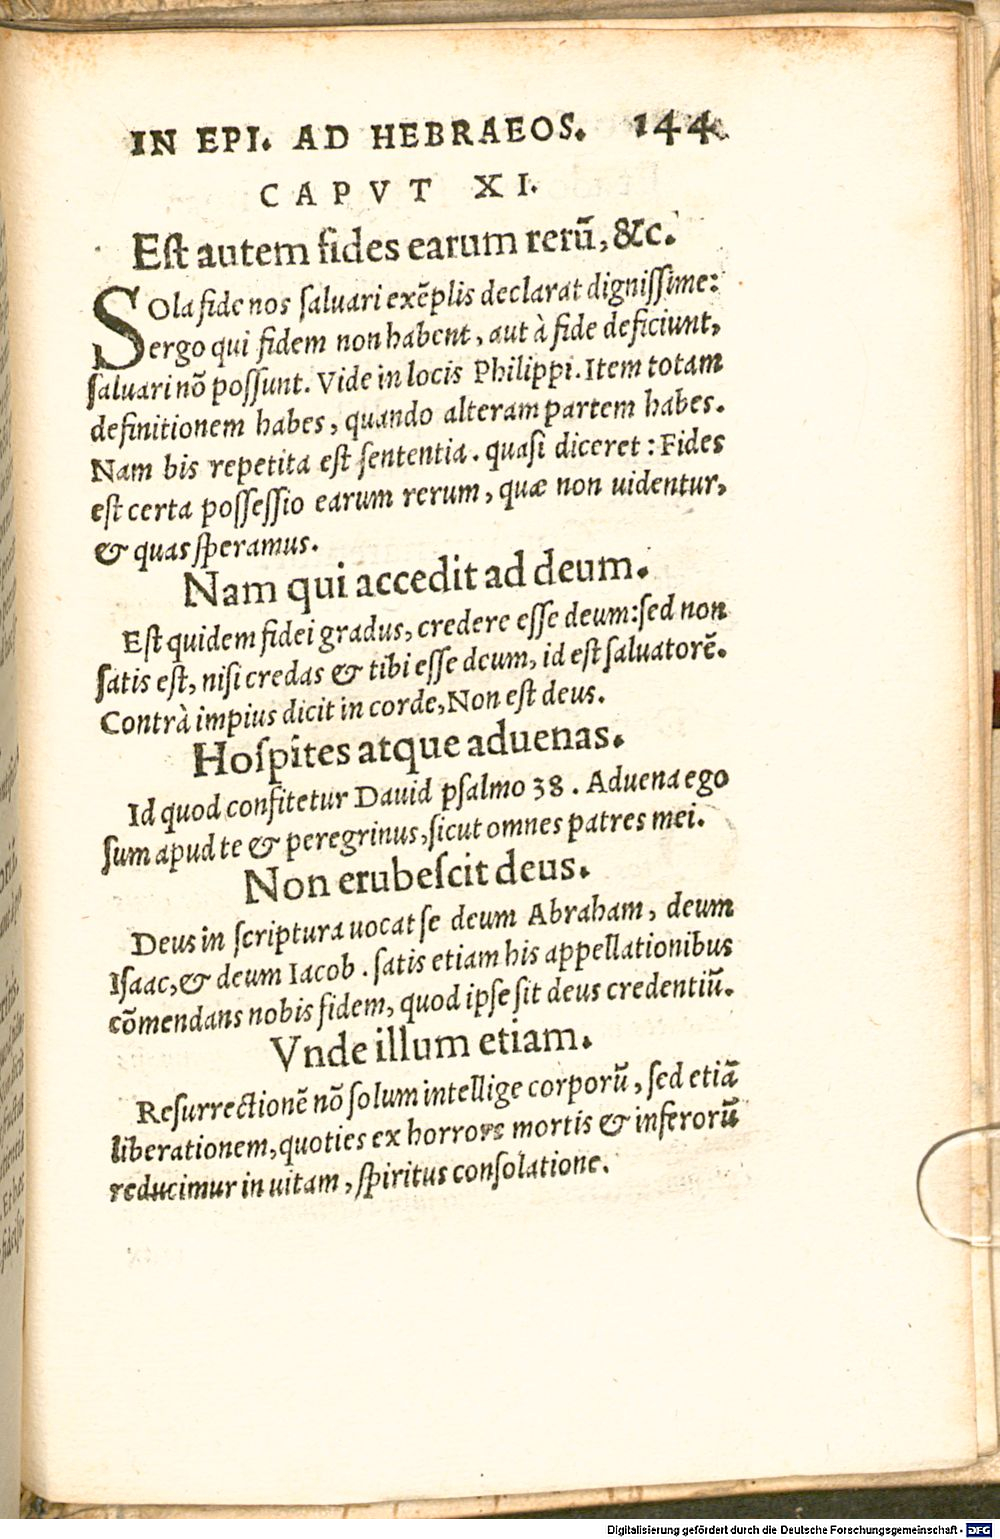 IN EPI. AD HEBRAEOS. 144
CAPVT XI.
Est autem fides earum rerū, &c.
SOla fide nos saluari exẽplis declarat dignissime:
ergo qui fidem non habent, aut à fide deficiunt,
saluari nõ possunt. Vide in locis Philippi. Item totam
definitionem habes, quando alteram partem habes.
Nam bis repetita est sententia. quasi diceret: Fides
est certa possessio earum rerum, quæ non uidentur,
& quas speramus.
Nam qui accedit ad deum.
Est quidem fidei gradus, credere esse deum: sed non
satis est, nisi credas & tibi esse deum, id est saluatorẽ.
Contrà impius dicit in corde, Non est deus.
Hospites atque aduenas.
Id quod confitetur Dauid psalmo 38. Aduena ego
sum apud te & peregrinus, sicut omnes patres mei.
Non erubescit deus.
Deus in scriptura uocat se deum Abraham, deum
Isaac, & deum Iacob. satis etiam his appellationibus
cõmendans nobis fidem, quod ipse sit deus credentiũ.
Vnde illum etiam.
Resurrectionẽ nõ solum intellige corporũ, sed etiã
liberationem, quoties ex horrore mortis & inferorũ
reducimur in uitam, spiritus consolatione.
Digitalisierung gefördert durch die Deutsche Forschungsgemeinschaft - DFG